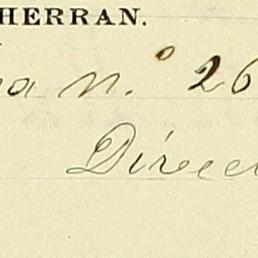 HERRAN.
a n.º 26
Direc